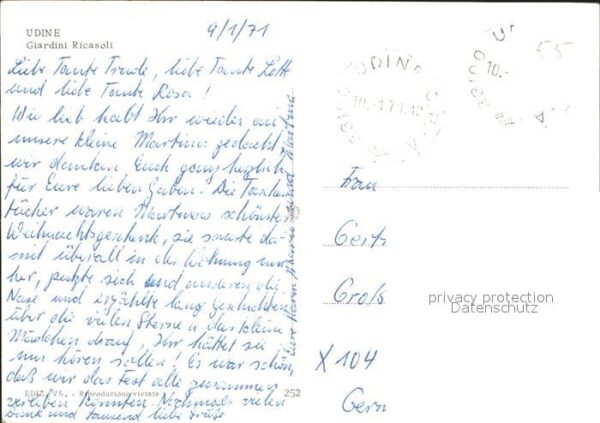 UDINE
Giardini Ricasoli
9/1/71
Liebe Tante Trude, liebe Tante Lott
und liebe Tante Rosa!
Wie lieb habt Ihr wieder an
unsere kleine Martina gedacht,
wir danken Euch ganz herzlich
für Eure lieben Gaben. Die Taschen
tücher waren Martinas schönstes
Weihnachtsgeschenk, sie sauste da-
mit überall in der Wohnung um
her, putzte sich und anderen die
Nase und erzählte lange Geschichten
über die vielen Sterne u. das kleine
Mädchen drauf, Ihr hättet sie
nur hören sollen! Es war schön,
daß wir das Fest alle zusammen
verleben konnten. Nochmals vielen
Dank und tausend liebe Grüße
Eure Martina
EDIZ. VS. - Riproduzione vietata
252
UDINE
10.-1.71.12
55
Frau
Gertr
Groß
X 104
Gera
privacy protection
Datenschutz